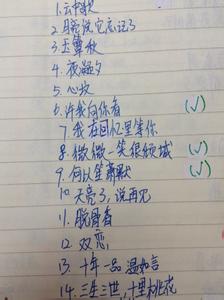 1.云中歌
2.随便说它忘记了
3.玉簟秋
4.夜凝夕
5.心坟
6.许我向你看 (√)
7.我在回忆里等你
8.微微一笑很倾城 (√)
9.何以笙箫默 (√)
10.天亮了,说再见
11.脱骨香
12.双恋
13.十年一品温如言
14.三生三世,十里桃花